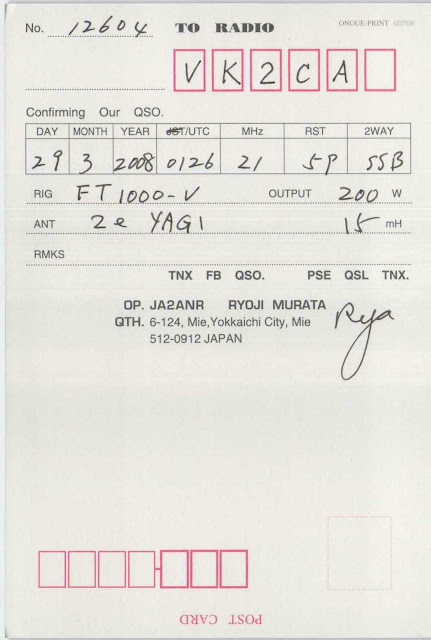 No. 12604 TO RADIO ONOUE-PRINT
VK2CA
Confirming Our QSO.
DAY MONTH YEAR JST/UTC MHz RST 2WAY
29 3 2008 0126 21 59 SSB
RIG FT1000-V OUTPUT 200 W
ANT 2e YAGI 15 mH
RMKS
TNX FB QSO. PSE QSL TNX.
OP. JA2ANR RYOJI MURATA
QTH. 6-124, Mie,Yokkaichi City, Mie
512-0912 JAPAN
POST CARD